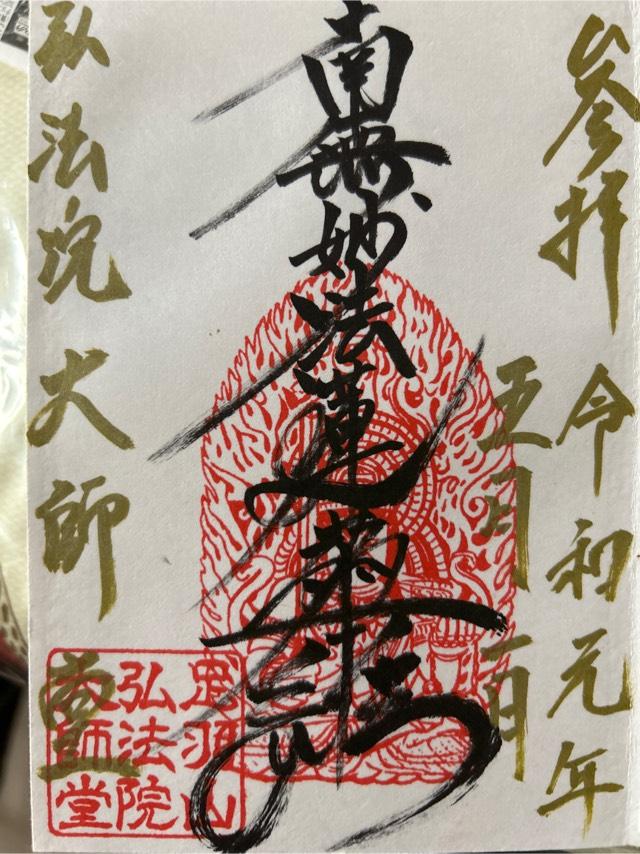 参拝 令和元年
五月一日
南無妙法蓮華経
弘法院 大師堂
弘法院
大師堂